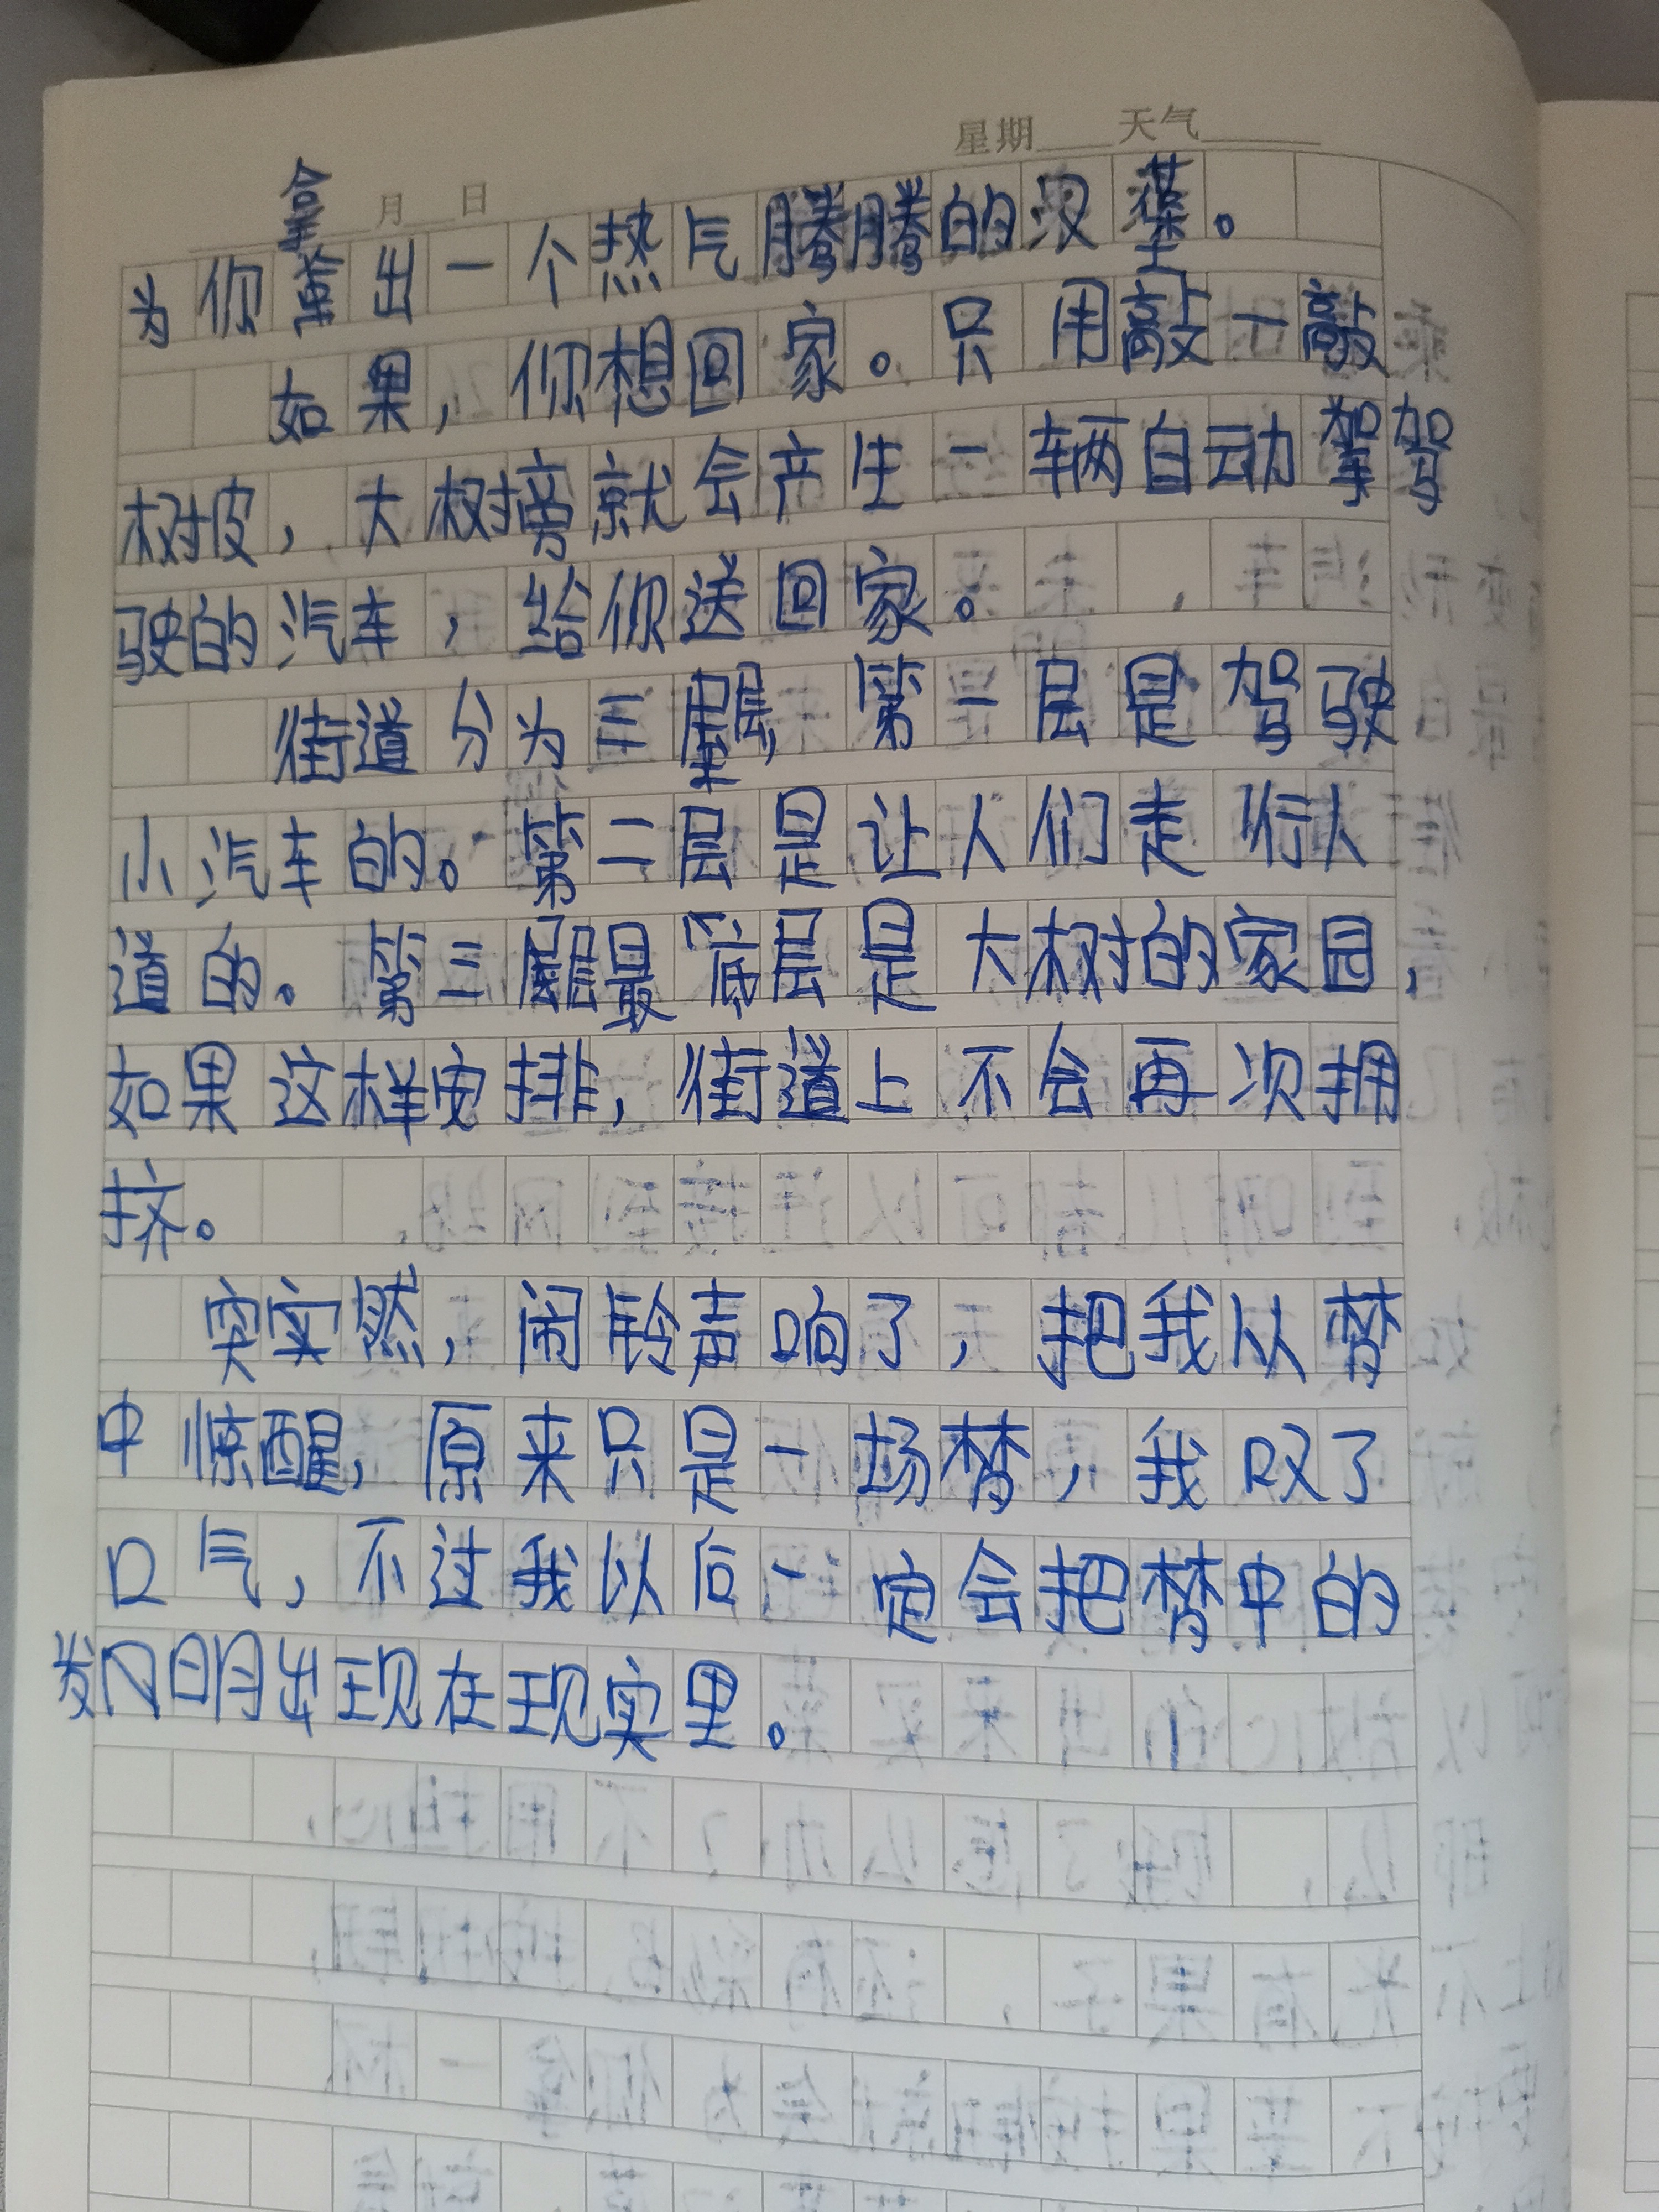 星期 天气
月 日
为你拿出一个热气腾腾的汉堡。
如果，你想回家。只用敲一敲
树皮，大树旁就会产生一辆自动驾
驶的汽车，给你送回家。
街道分为三层，第一层是驾驶
小汽车的。第二层是让人们走行人
道的。第三层最底层是大树的家园，
如果这样安排，街道上不会再次拥
挤。
突然，闹铃声响了，把我从梦
中惊醒，原来只是一场梦，我叹了
口气，不过我以后一定会把梦中的
发明出现在现实里。